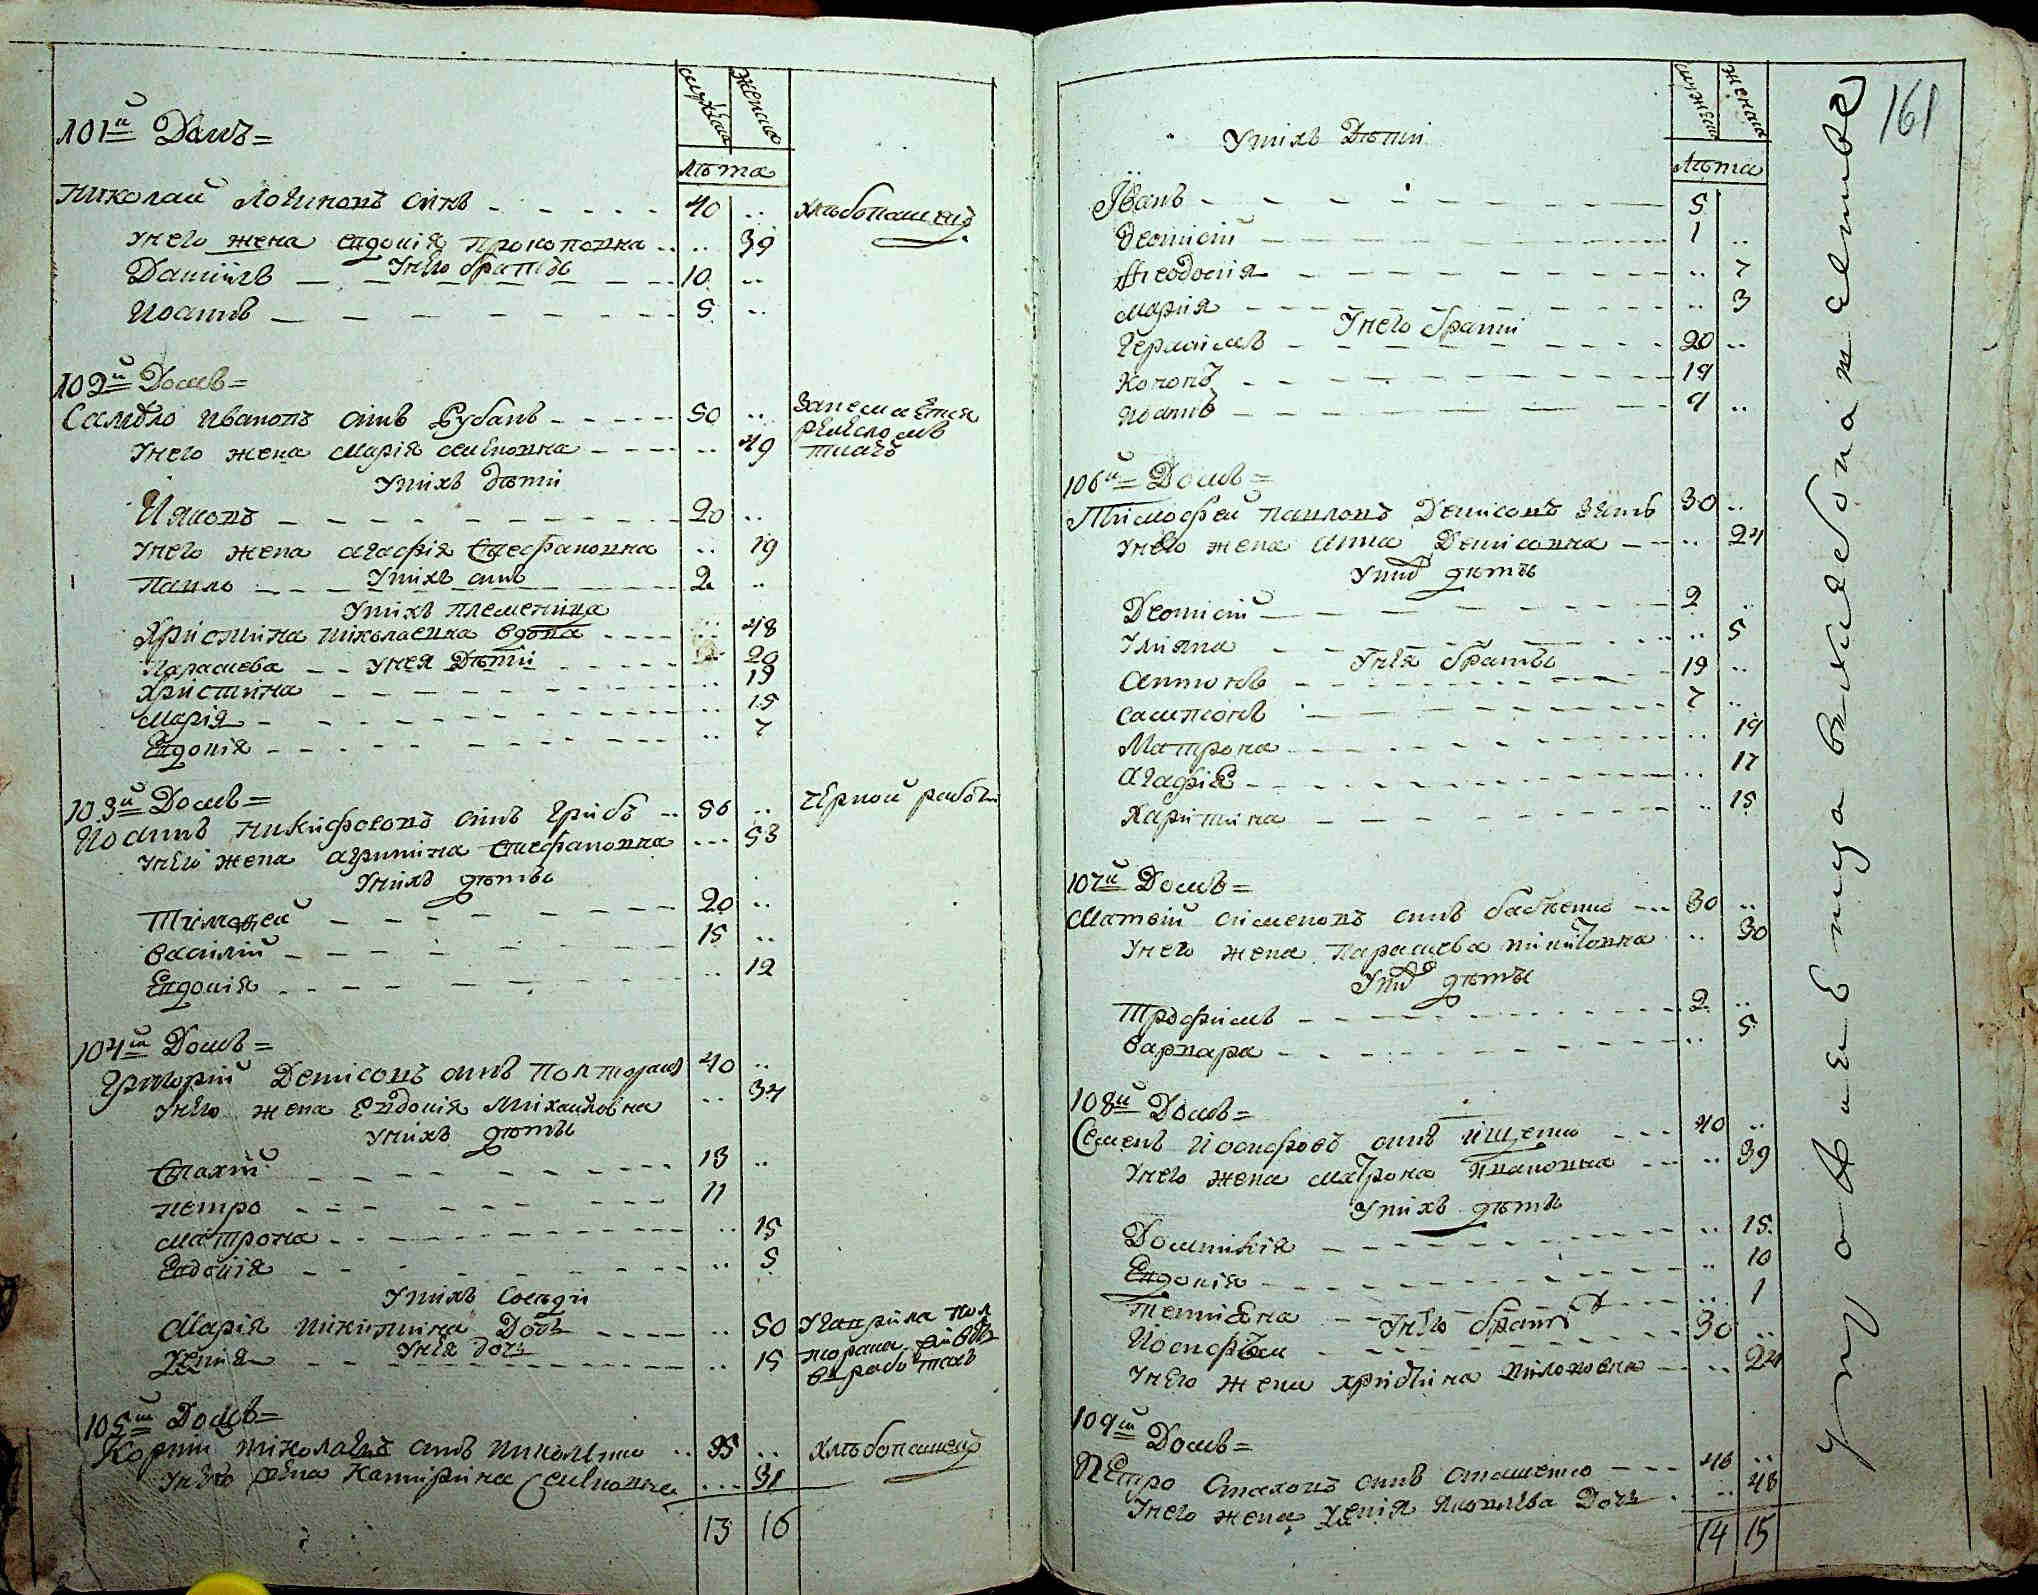 мужеска женска
лѣта
101й Домъ=
Николай Логиновъ синъ 40 .. хлѣбопашецъ
Унего жена Евдокія Прокоповна .. 39
Унего братъе
Даниилъ 10 ..
Иоаннъ 5 ..
102й Домъ=
Самойло Ивановъ синъ Рубанъ 50 .. Занемается
ремесломъ
Унего жена Марія Семеновна .. 49 ткачъ
Унихъ дѣти
Ияковъ 20 ..
Унего жена Агафія Стефановна .. 19
Унихъ синъ
Павло 2 ..
Унихъ племеница
Християна Николаевна вдова .. 48
Унея Дѣти
Параскева 20
Християна .. 19
Марія .. 15
Евдокія .. 7
103й Домъ=
Иоаннъ Никифоровъ синъ Грибъ 56 .. Чорной работи
Унего жена Агрипина Стефановна ... 53
Унихъ дѣтъе
Тимофей 20 ..
Василій 15 ..
Евдокія .. 12
104й Домъ=
Григорій Денисовъ синъ Полторакъ 40 ..
Унего жена Евдокія Михайловна .. 34
Унихъ дѣтъе
Стахій 13 ..
Петро 11
Матрона .. 15
Евдокія .. 5
Унихъ Сосѣди
Марія Никитина Дочь .. 50
Унея дочь
Ксенія .. 15 в работахъ
105й Домъ=
Корнии Николаевъ синъ Николенко .. 35 .. хлѣбопашецъ
Унего жена Катирина Семновна ... 31
13 16
161
мужеска женска
лѣта
Унихъ Дѣти
Иванъ 5
Деонисій 1 ..
Феодосія .. 7
Марія .. 3
Унего брати
Герасимъ 20 ..
Кононъ 19
Иоаннъ 9 ..
106й Домъ=
Тимофей Павловъ Денисовъ зять 30 ..
Унего жена Анна Денисовна .. 24
Унихъ дѣтъе
Деонисій 2 ..
Улияна .. 5
Унея братъе
Антонъ 19 ..
Сампсонъ 7 ..
Матрона .. 19
Агафія .. 17
Харитина .. 15
107й Домъ=
Матвій Сименовъ синъ Бабенко 30 ..
Унего жена Параскева Никитовна .. 30
Унихъ дѣтъе
Трофимъ 2 ..
Варвара .. 5
108й Домъ=
Семенъ Иосифовъ синъ Ищенко 40 ..
Унего жена Матрона Ивановна .. 39
Унихъ дѣтъе
Домникія .. 15
Евдокія .. 10
Тетияна .. 1
Унего братъ
Иосифъ 30 ..
Унего жена Християна .. 24
109й Домъ=
Петро Стаховъ синъ Сташенко 46 ..
Унего жена Ксенія Яковлева Дочь .. 48
14 15